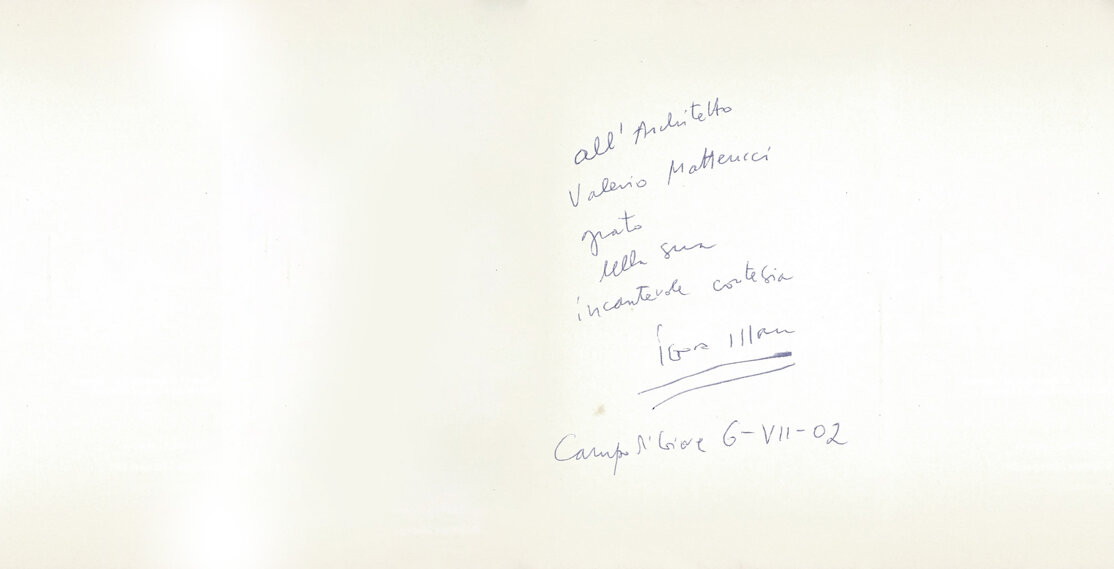 all' Architetto
Valerio Matteucci
grato
della sua
incantevole cortesia
Igor Man
Campo di Giove 6-VII-02